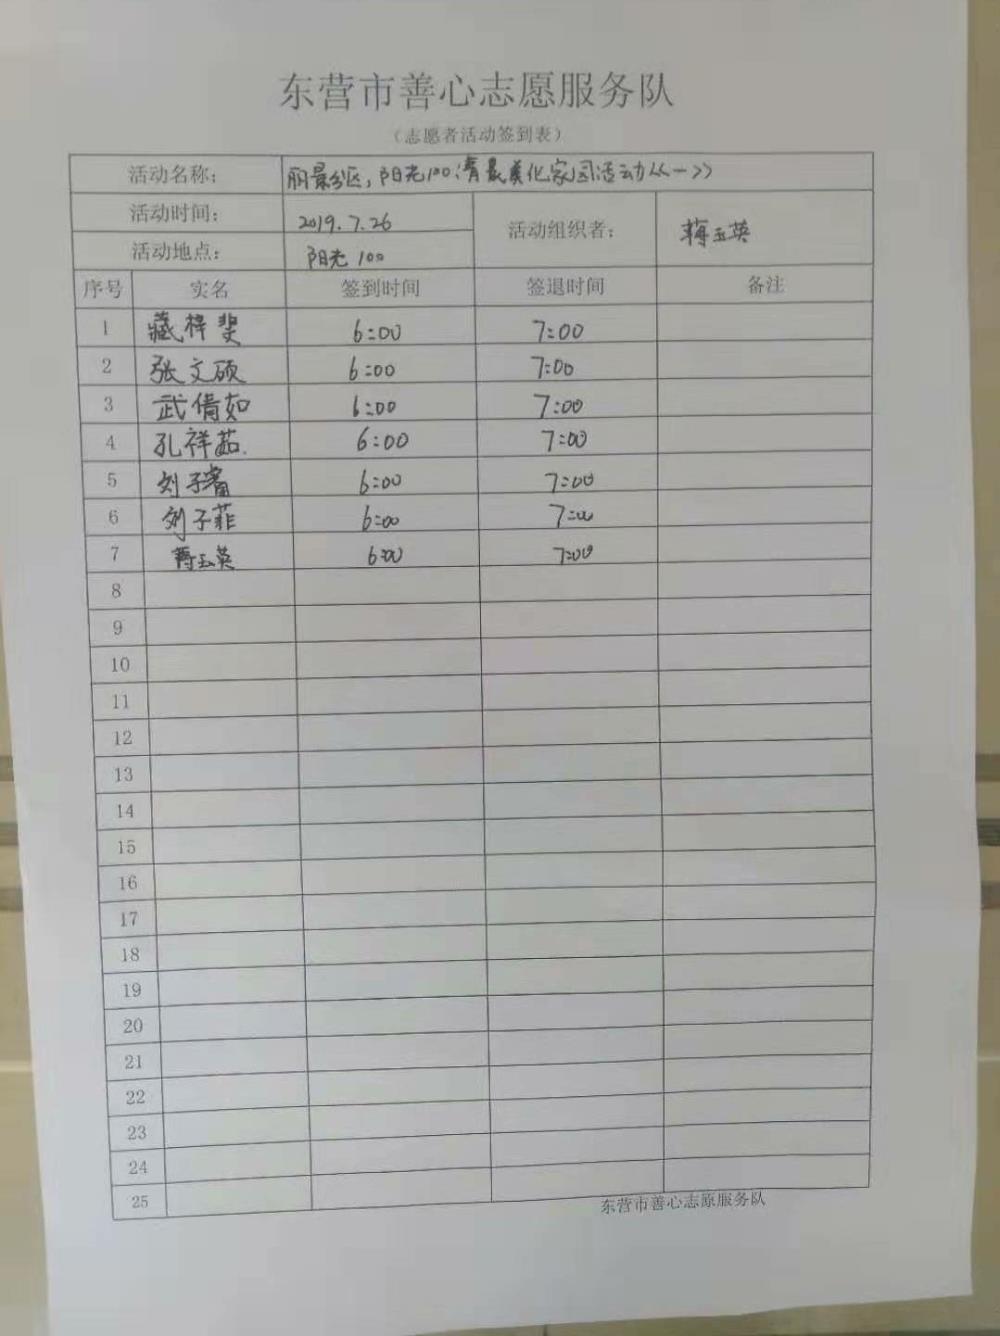 东营市善心志愿服务队
（志愿者活动签到表）
活动名称： 丽景分区，阳光100清晨美化家园活动《一》
活动时间： 2019.7.26 活动组织者： 蒋玉英
活动地点： 阳光100
序号 实名 签到时间 签退时间 备注
1 臧梓斐 6:00 7:00
2 张文硕 6:00 7:00
3 武倩如 6:00 7:00
4 孔祥茹. 6:00 7:00
5 刘子睿 6:00 7:00
6 刘子菲 6:00 7:00
7 蒋玉英 6:00 7:00
8
9
10
11
12
13
14
15
16
17
18
19
20
21
22
23
24
25
东营市善心志原服务队